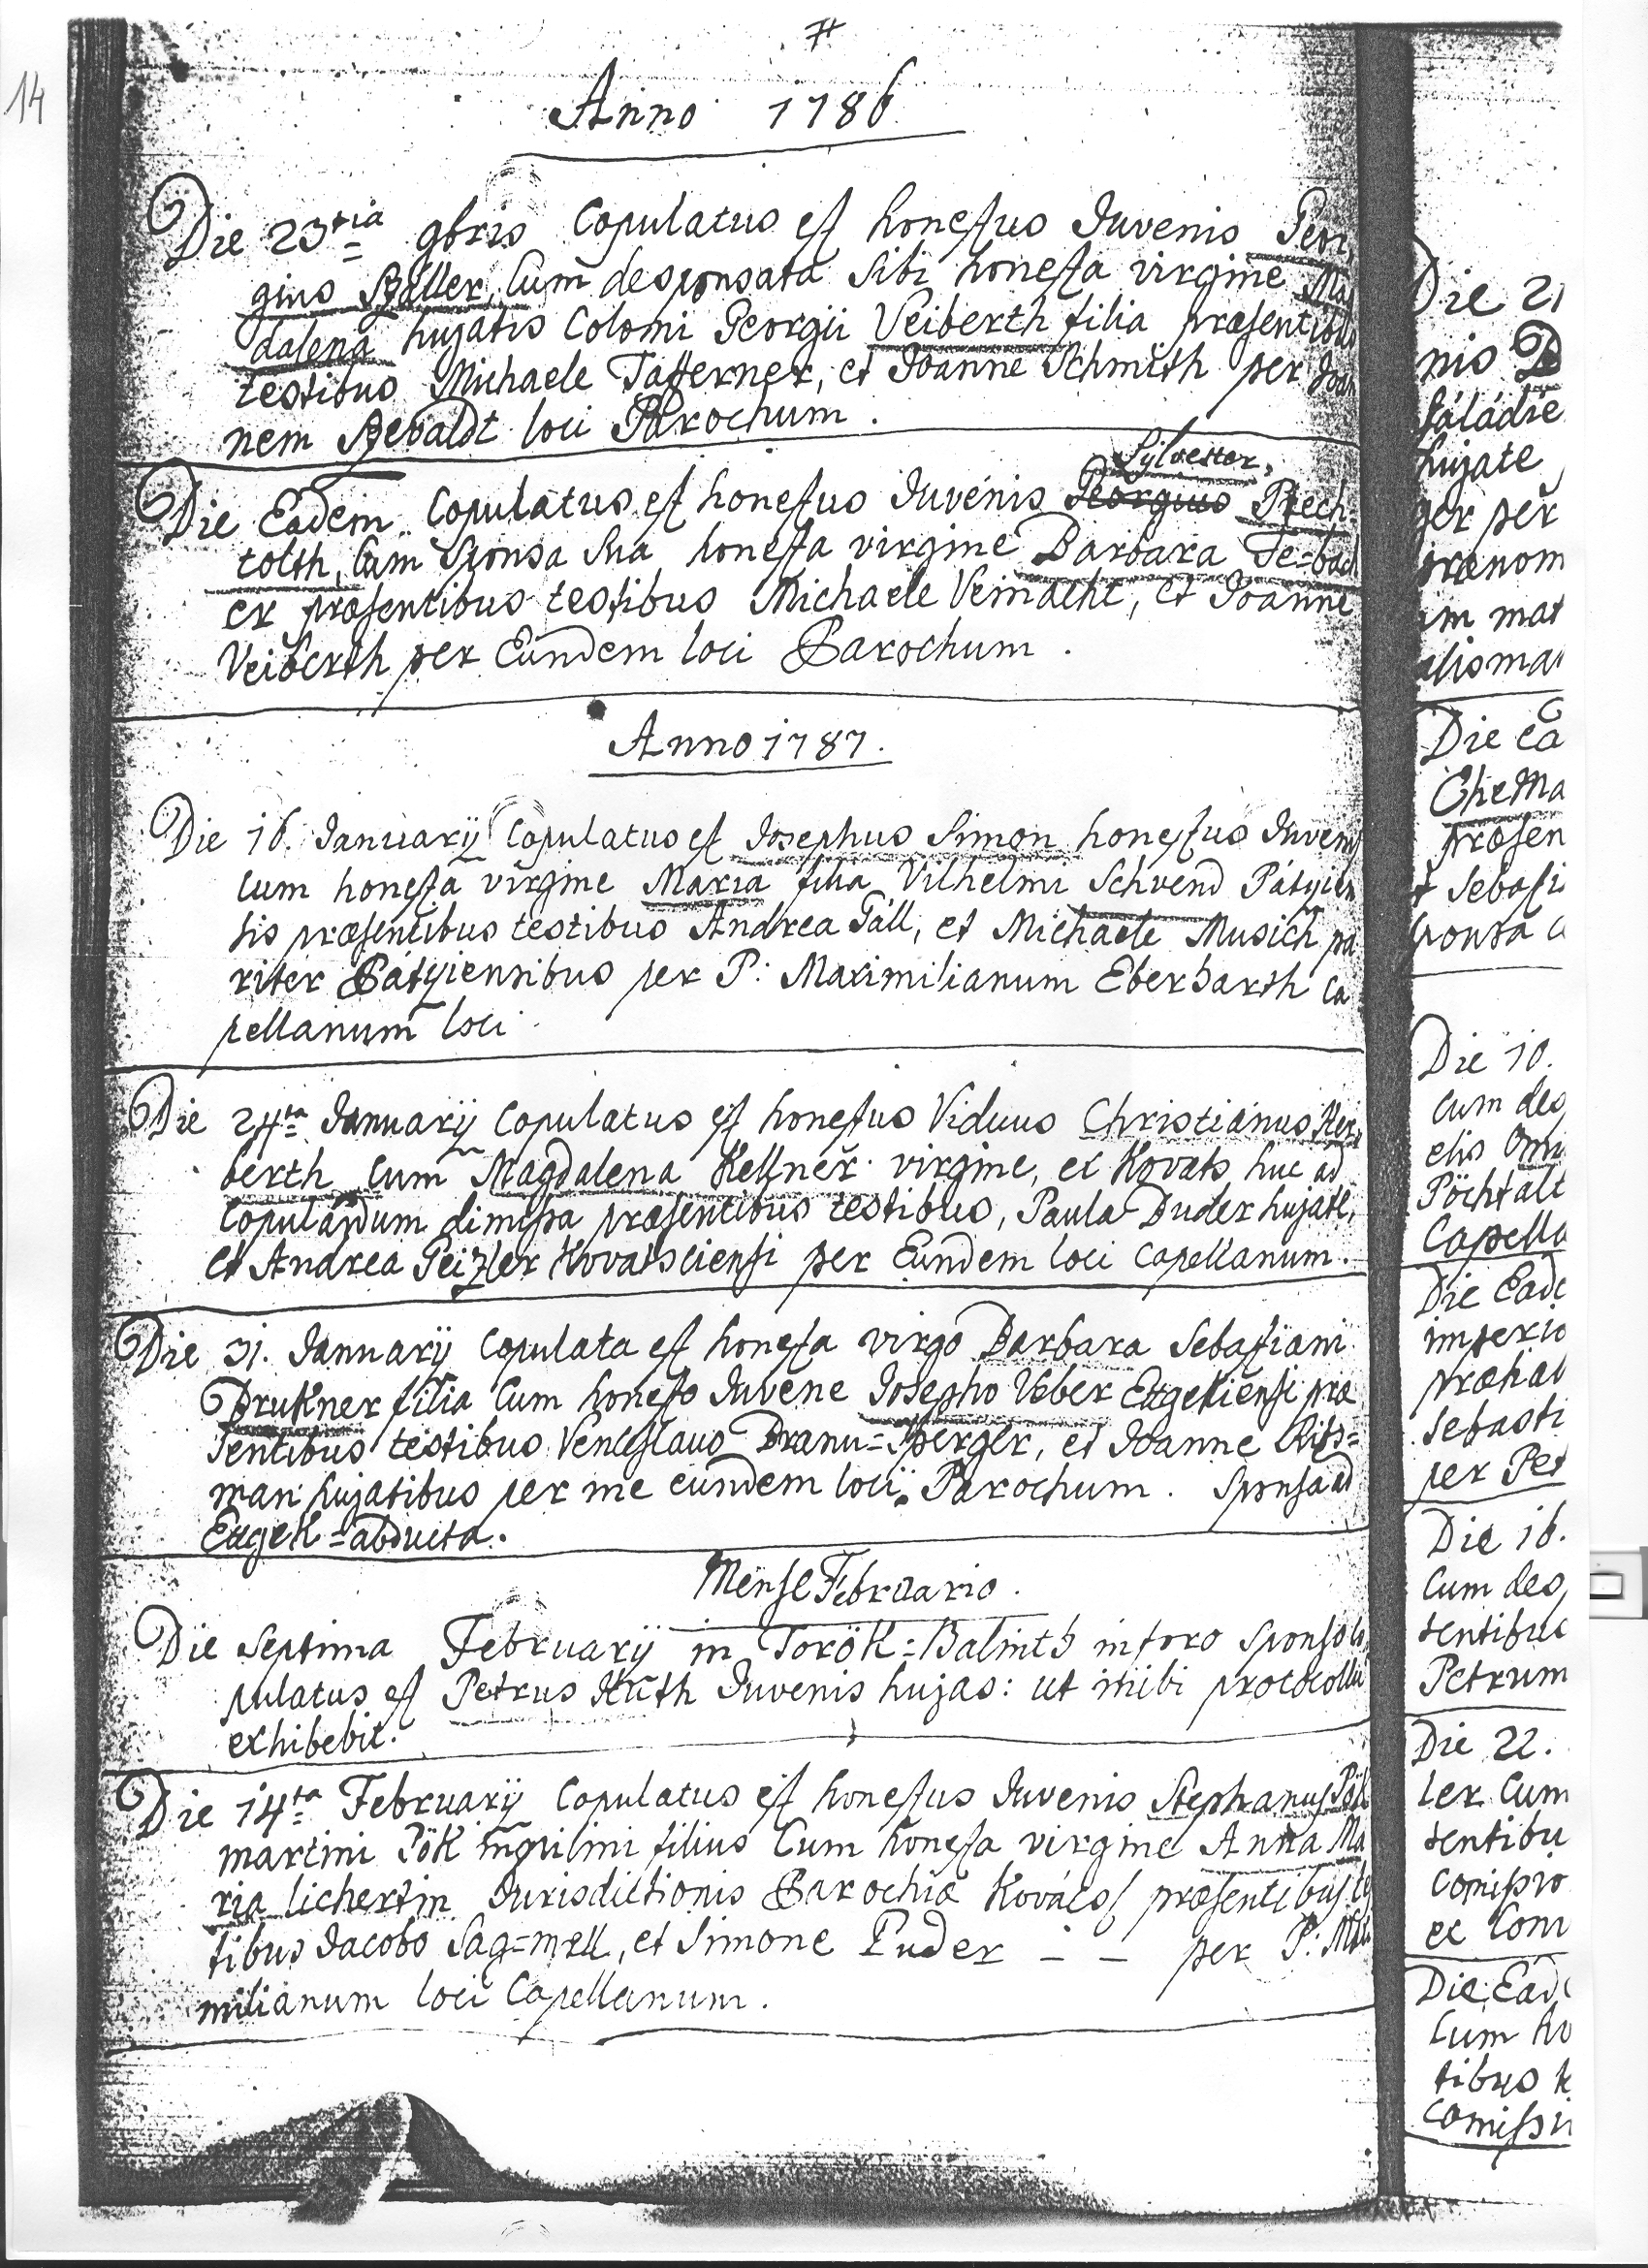 14
7
Anno 1786.
Die 23tia 9bris Copulatus est honestus Iuvenis Geor,
gius Haller, Cum desponsata sibi honesta virgine Mag
dalena hujatis Coloni Georgii Veiberth filia præsentibus
testibus Michaele Tafferner, et Ioanne Schmith per Ioan
nem loci Parochum.
Sylvester,
Die Eadem Copulatus est honestus Iuvenis Georgius Prech
tolth, Cum Sponsa Sua honesta virgine Barbara
er præsentibus testibus Michaele Veinacht, et Ioanne
Veiberth per Eundem loci Parochum.
Anno 1787.
Die 16. Ianuarÿ Copulatus est Iosephus Simon honestus Iuvenis
Cum honesta virgine Maria filia Vilhelmi Schvend Pátyien
sis præsentibus testibus Andrea Páll, et Michaele Musich pa
riter Pátyiensibus per P: Maximilianum Eberharth Ca
pellanum loci.
Die 24ta Ianuarÿ Copulatus est honestus Viduus Christianus
berth Cum Magdalena Kellner virgine, ex Kovats huc ad
Copulandum dimissa præsentibus testibus, Paulo Duder hujate,
et Andrea Peizler Kovatsciensi per Eundem loci Capellanum.
Die 31. Ianuarÿ Copulata est honesta virgo Barbara Sebastiani
Drukner filia Cum honesto Iuvene Iosepho Veber Etyekiensi præ
sentibus testibus Venceslaus Branu=Sperger, et Ioanne Rits=
man hujatibus per me eundem loci Parochum. Sponsa ad
Etyek=abducta.
Mense Februario.
Die Septima Februarÿ in Török=Balinth in foro Sponso Co
pulatus est Petrus Kuth Iuvenis hujas: ut inibi protocollu
exhibebit.
Die 14ta Februarÿ Copulatus est honestus Iuvenis Stephanus Pök
martini Pök filius Cum honesta virgine Anna Ma
ria lichertin Iurisdictionis Parochiæ Kovács præsentibus tes
tibus Iacobo Sag=mell, et Simone Puder - - per P: Maxi
milianum loci Capellanum.
Die 21
nio
saládie
hujate
ger per
prænom
um mat
Die Ea
præsen
et Sebasti
sponsa
Die 10.
Cum des
elis
Pöchtalt
Capella
Die Eade
imperio
præhab
Sebasti
per Pet
Die 16.
Cum des,
sentibus
Petrum
Die 22.
ler Cum
sentibu
Comissio
ex Com
Die Ead
Cum ho
tibus
Comissi